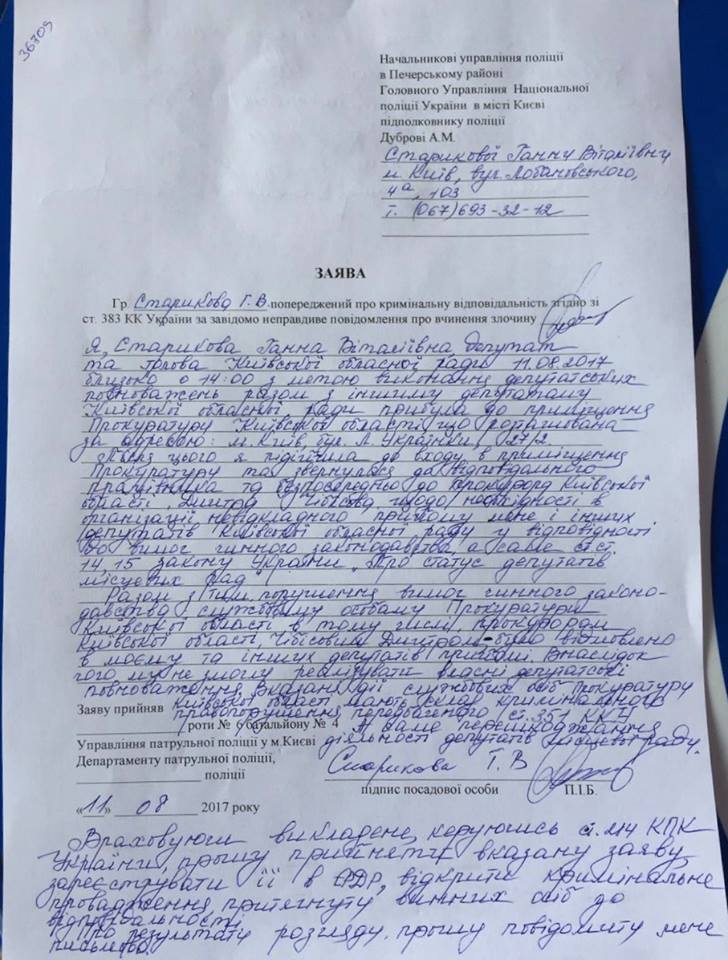 36709
Начальникові управління поліції
в Печерському районі
Головного Управління Національної
поліції України в місті Києві
підполковнику поліції
Дуброві А.М.
Старикової Ганни Віталіївни
м. Київ, вул. Лобановського,
4а, 103
т. (067) 693-32-12
ЗАЯВА
Гр. Старикова Г.В попереджений про кримінальну відповідальність згідно зі
ст. 383 КК України за завідомо неправдиве повідомлення про вчинення злочину
Я, Старикова Ганна Віталіївна депутат
та голова Київської обласної ради 11.08.2017
близько о 14:00 з метою виконання депутатських
повноважень разом з іншими депутатами
Київської обласної ради прибула до приміщення
Прокуратури Київської області що розташована
за адресою: м. Київ бул. Л. Українки, 27/2
Після цього я підійшла до входу в приміщення
Прокуратури та звернулася до відповідального
працівника та безпосередньо до прокурора Київської
області Дмитра Чибісова щодо необхідності в
організації невідкладного прийому мене і інших
депутатів Київської обласної ради у відповідності
до вимог чинного законодавства, а саме ст.ст.
14, 15 закону України „Про статус депутатів
місцевих рад"
Разом з тим, порушення вимог чинного законо-
давства службовими особами Прокуратури
Київської області в тому числі прокурором
Київської області Чібісовим Дмитром було відмовлено
в моєму та інших депутатів прийомі. Внаслідок
чого ми не змогли реалізувати власні депутатські
повноваження. Вказані дії службових осіб Прокуратури
Київської області мають склад кримінального
правопорушення передбаченого ст. 351 ККУ
а саме перешкоджання
діяльності депутатів місцевої ради.
Заяву прийняв
роти № 6 батальйону № 4
Управління патрульної поліції у м.Києві
Департаменту патрульної поліції,
поліції
Старикова Г.В
підпис посадової особи П.І.Б.
«11» 08 2017 року
Враховуючи викладене, керуючись ст. 214 КПК
України, прошу прийняти вказану заяву
зареєструвати її в ЄРДР, відкрити кримінальне
провадження, притягнути винних осіб до
відповідальності.
Про результати розгляду, прошу повідомити мене
письмово.